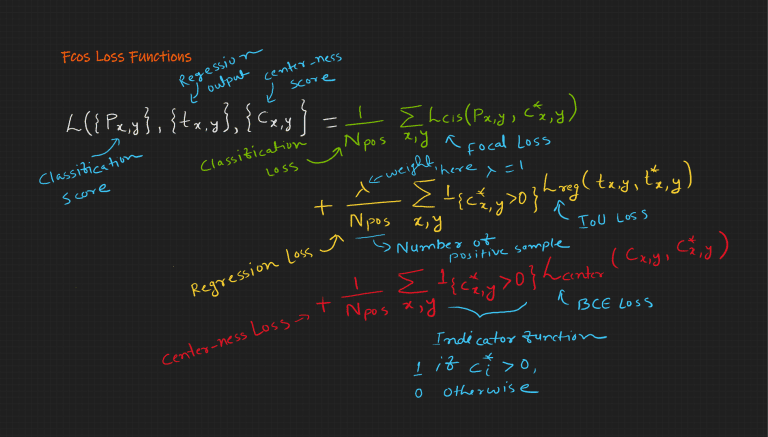 Fcos Loss Functions
Regression output
center-ness score
L({Px,y}, {tx,y}, {Cx,y} = 1/Npos Σx,y Lcls(Px,y, c*x,y)
Classification score
Classification Loss
Focal Loss
weight, here λ = 1
+ λ/Npos Σx,y 1{c*x,y>0} Lreg(tx,y, t*x,y)
IoU Loss
Regression Loss
Number of positive sample
+ 1/Npos Σx,y 1{c*x,y>0} Lcenter(Cx,y, C*x,y)
BCE Loss
Center-ness Loss
Indicator function
1 if c*i > 0,
0 otherwise